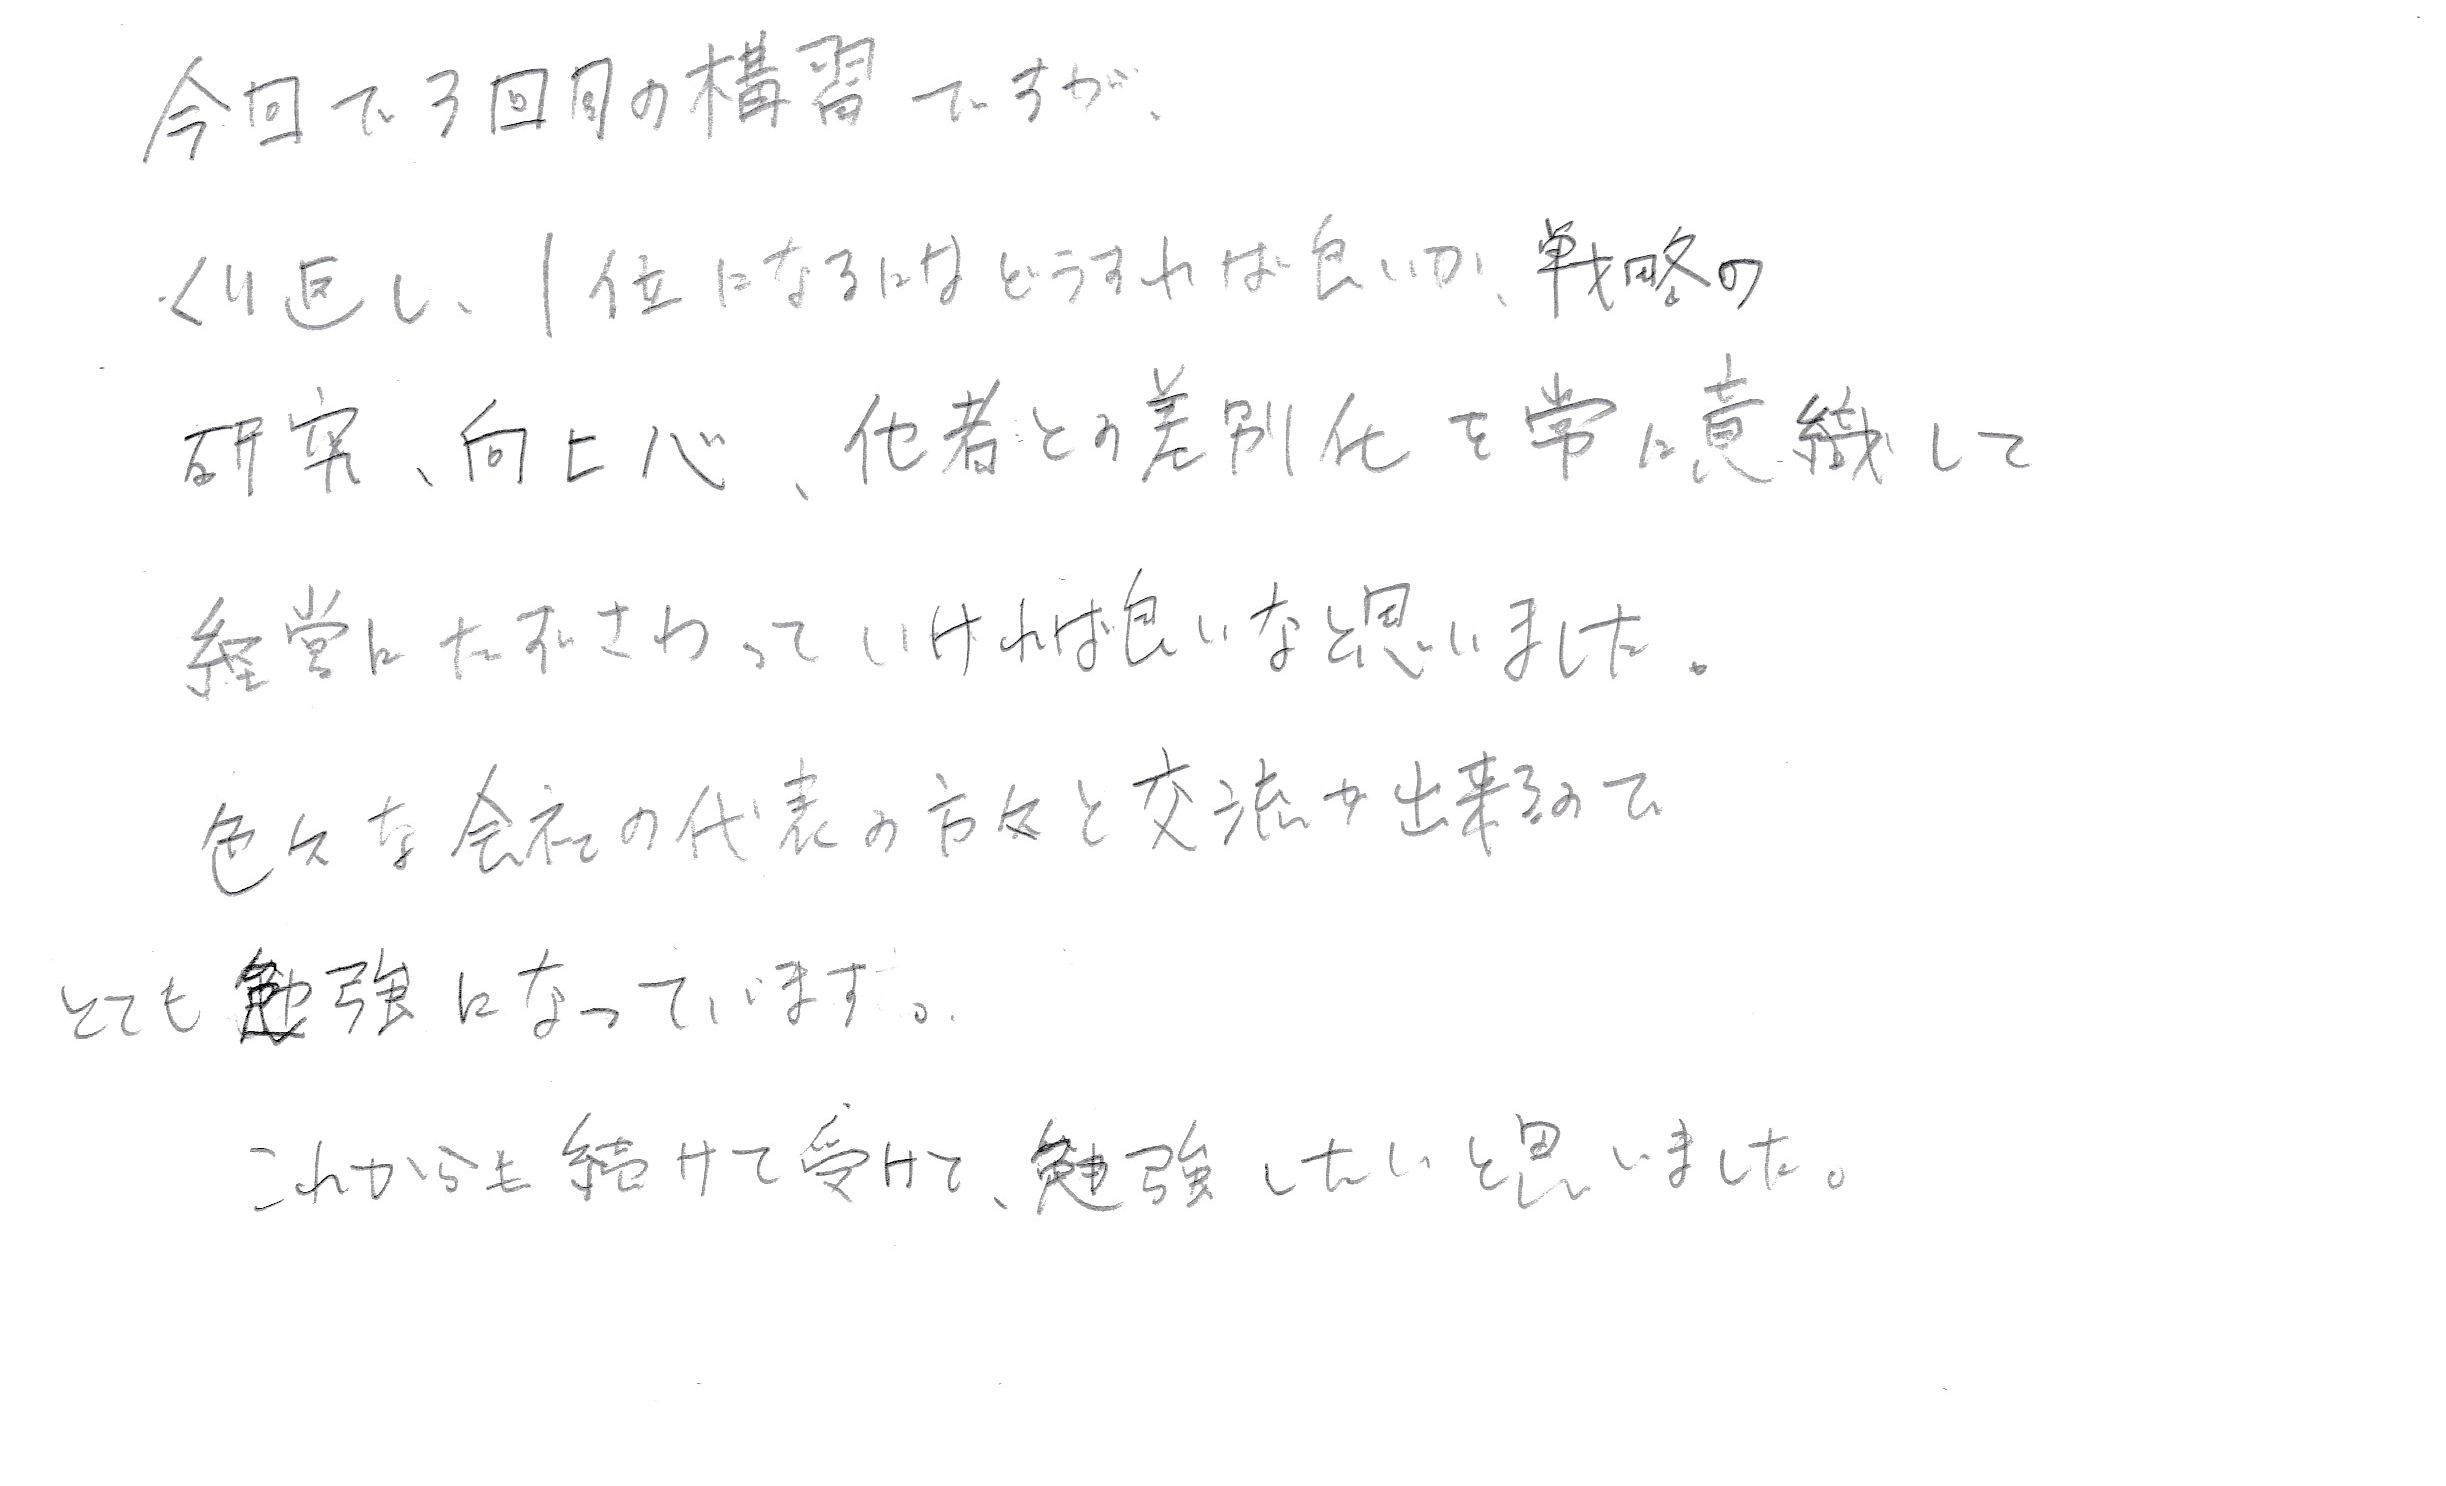 今回で3回目の構習ですが、
くり返し、1位になるにはどうすれば良いか、戦略の
研究、向上心、他者との差別化を常に意織して
経営にたずさわっていければ良いなと思いました。
色々な会社の代表の方々と交流が出来るので
とても勉強になっています。
これからも続けて受けて、勉強したいと思いました。